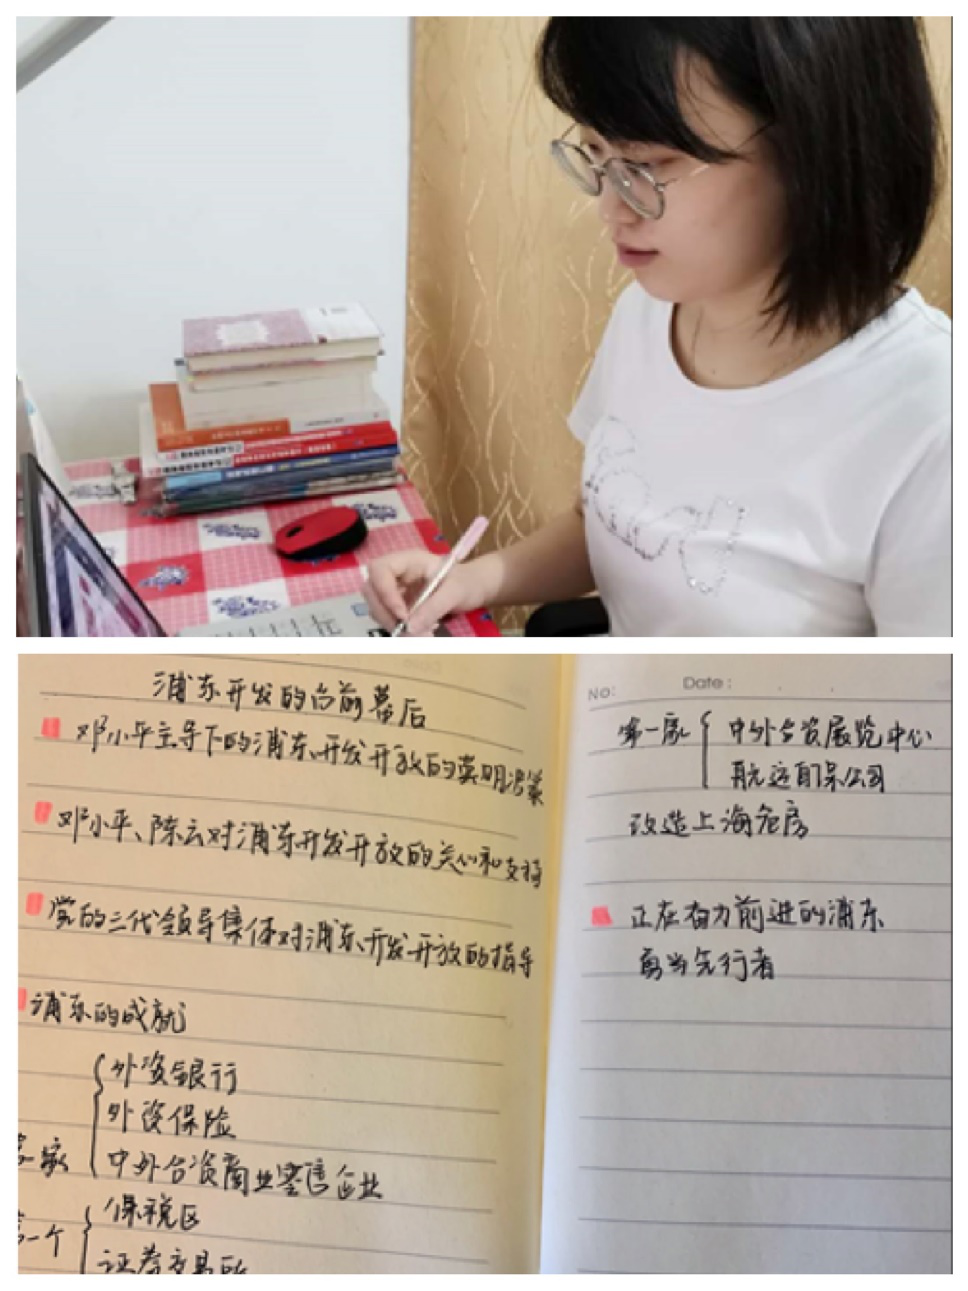 浦东开发的台前幕后
邓小平主导下的浦东开发开放的英明决策
邓小平、陈云对浦东开发开放的关心和支持
党的三代领导集体对浦东开发开放的指导
浦东的成就
外资银行
外资保险
家
中外合资商业零售企业
保税区
一个
证券交易所
No:
Date:
第一家
中外合资展览中心
改造上海危房
正在奋力前进的浦东
勇当先行者